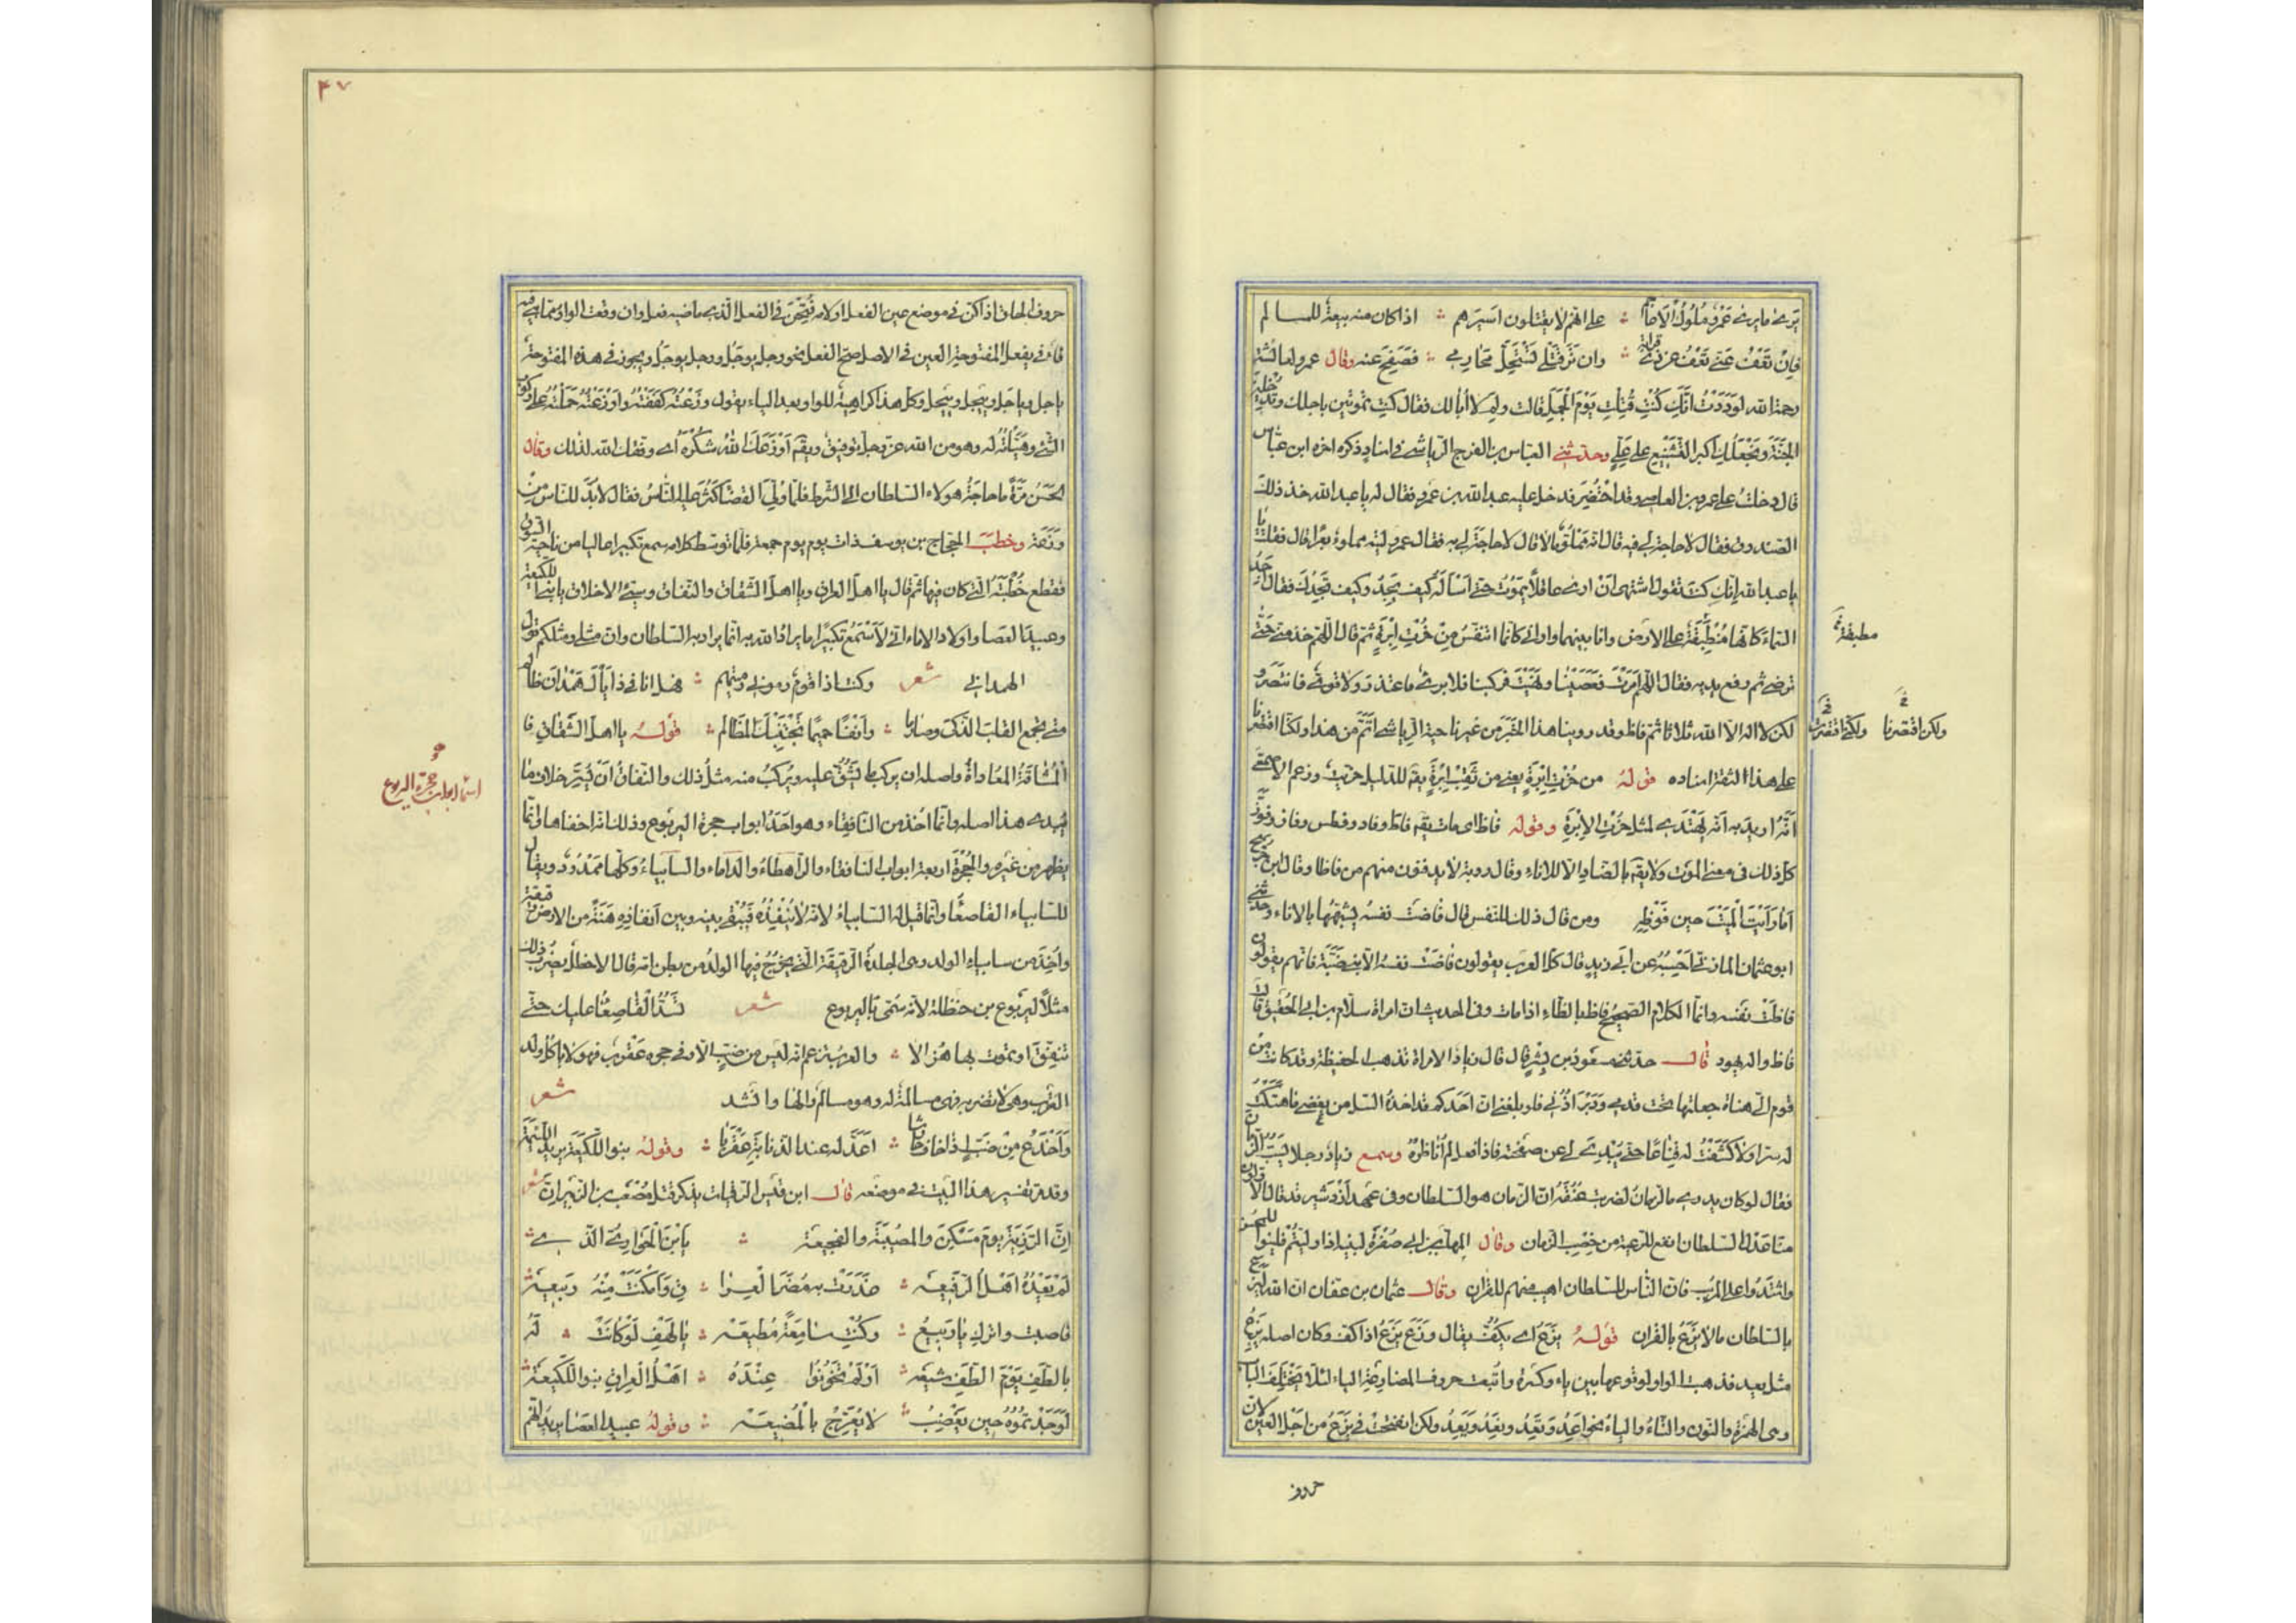 يرى ما يرى عمرو ملوك الأعاجم على انهم لا يقتلون اسيرهم اذا كان منه بيعة للمسالم
فان تعف عني تعف عن ذي قرابة وان تر قتلي تستحل محارمي فصفح عنه وقال عمرو لعائشة
رحمة الله لوددت انك كنت قتلت يوم الجمل قالت ولم لا أبا لك فقال كنت تموتين باجلك وتدخلين
الجنة ونجعلك اكبر التشنيع على علي وحدثني العباس بن الفرج الرياشي في اسناد ذكره اخره ابن عباس
قال دخلت على عمرو بن العاص وقد احتضر فدخل عليه عبد الله بن عمرو فقال له يا عبد الله خذ ذلك
الصندوق فقال لا حاجة لي فيه قال انه مملو مالا قال لا حاجة لي به فقال عمرو ليته مملوء بعرا قال فقلت يا
با عبد الله انك كنت تقول اشتهى ان ارى عاقلا يموت حتى اسأله كيف يجد وكيف تجدك فقال اجد
السماء كانها منطبقة على الارض وانا بينهما واراني كانما اتنفس من خرت ابرة ثم قال اللهم خذ مني حتى
مطبقة
ترضى ثم رفع يديه فقال اللهم امرت فعصينا ونهيت فركبنا فلا برىء فاعتذر ولا قوي فانتصر و
لكن لا اله الا الله ثلاثا ثم فاظ وقد روينا هذا الخبر من غير ناحية الرياشي اتم من هذا ولكنا اقتصرنا
ولكنى اقتصرت
ولكن اقتصرنا
على هذا لثقة اسناده قوله من خرت ابرة يعني من ثقب ابرة يقم للدليل خريت وزعم الاصمعي
انه اريد به انه يهتدى لمثل خرت الابرة وقوله فاظ اى مات يقم فاظ وفاد وفطس وفاز وفوز
كل ذلك في معنى الموت ولا يقم بالضاد الا للاناء وقال روبة لا يدفنون منهم من فاظا وقال ابن جريج
اما رايت الميت حين فوظه ومن قال ذلك للنفس قال فاضت نفسه يشبهها بالاناء وحدثني
ابو عثمان المازني احسبه عن ابي زيد قال كل العرب يقولون فاضت نفسه الا بني ضبة فانهم يقولون
فاظت نفسه وانما الكلام الصحيح فاظ بالظاء اذا مات وفى الحديث ان امراة سلام بن ابي الحقيق قالت
فاظ واله يهود قال حدثني مسعود بن بشر قال قال زياد الامراة تذهب الحفيظة وقد كانت من
قوم الى هناة جعلتها تحت قدمي ودبر اذني فلو بلغني ان احدكم قد اخذه السل من بغضي ما هتكت
له سترا ولا كشفت له قناعا حتى يبدى لي عن صفحته فاذا فعل لم اناظره وسمع زياد رجلا يسب الزمان
فقال لو كان يدرى ما الزمان لضربت عنقه ان الزمان هو السلطان وفى عهد اردشير قد قال الاولون
منا عدل السلطان انفع للرعية من خصب الزمان وقال المهلب بن ابي صفرة لبنيه اذا وليتم فلينوا للمحسن
واشتدوا على المريب فان الناس للسلطان اهيب منهم للقران وقال عثمان بن عفان ان الله ليزع
بالسلطان ما لا يزع بالقران قوله يزع اى يكف يقال وزع يزع اذا كف وكان اصله يوزع
مثل يعد فذهبت الواو لوقوعها بين ياء وكسرة واتبعت حروف المضارعة الياء لئلا يختلف الباب
وهى الهمزة والنون والتاء والياء نحو اعد وتعد ونعد ويعد ولكن انفتحت فى يزع من اجل العين لان
حروف
٤٧
حروف الحلق اذا كن في موضع عين الفعل او لامه فتحن في الفعل الذى ماضيه فعل وان وقعت الواو مما هى فيه
فاء في يفعل المفتوحة العين في الاصل صح الفعل نحو وجل يوجل ووحل يوحل ويجوز في هذه المفتوحة
ياجل وياحل وييجل وييحل وكل هذا كراهية للواو بعد الياء يقول وزعته كففته واوزعته حملته على ركوب
الشئ وهيأته له وهو من الله عز وجل توفيق ويقم اوزعك الله شكره اى وفقك الله لذلك وقال
الحسن مرة ما حاجة هولاء السلطان الى الشرط فلما ولي القضا كثر عليه الناس فقال لا بد للناس من
وزعة وخطب الحجاج بن يوسف ذات يوم يوم جمعة فلما توسط كلامه سمع تكبيرا عاليا من ناحية السوق
فقطع خطبته التي كان فيها ثم قال يا اهل العراق ويا اهل الشقاق والنفاق وسيئ الاخلاق يا بني اللكيعة
وعبيد العصا واولاد الاماء اني لأسمع تكبيرا ما يراد الله به انما يراد به السلطان وان مثلي ومثلكم قول
الهمداني شعر وكنت اذا قوم رموني رميتهم فهل انا في ذا يا آل همدان ظالم
متى تجمع القلب الذكى وصارما وانفا حميا تجتنبك المظالم قوله يا اهل الشقاق فا
المشاقة المعاداة واصله ان يركب ما يشق عليه ويركب منه مثل ذلك والنفاق ان يسر خلاف ما
يبدى هذا اصله وانما اخذ من النافقاء وهو احد ابواب جحرة اليربوع وذلك انه اخفاها وانما
اسماء ابواب جحرة اليربوع
يظهر من غيره والجحرة اربعة ابواب النافقاء والراهطاء والداماء والسابياء وكلها ممدود ويقال
للسابياء القاصعا وانما قيل له السابياء لانه لا ينفذه فيبقى بينه وبين انفاذه هنة من الارض رقيقة
واخذ من سابياء الولد وهى الجلدة الرقيقة التى يخرج فيها الولد من بطن امه قال الاخطل يضرب ذلك
مثلا ليربوع بن حنظلة لانه سمى باليربوع شعر تسد القاصعا عليك حتى
تنفق او تموت بها هزالا والعرب تزعم انه ليس من ضب الا وفى جحره عقرب فهو لا ياكل ولد
العقرب وهى لا تضربه فهى مسالمة له وهو مسالم لها وانشد شعر
وأخدع من ضب اذا خاف حارشا اعد له عند الذنابة عقربا وقوله بنو اللكيعة يريد اللئيمة
وقد مر تفسير هذا البيت في موضعه قال ابن قيس الرقيات يذكر قتل مصعب بن الزبير ان شعر
ان الرزية يوم مسكن والمصيبة والفجيعة بابن الحوارى الذى
لم يعده اهل الوقيعه غدرت به مضر العرا ق وامكنت منه ربيعة
فاصبت وترك يا ربيع وكنت سامعة مطيعه يا لهف لو كانت له
بالطف يوم الطف شيعه اولم يخونوا عهده اهل العراق بنو اللكيعة
لوجدتموه حين يغضب لا يعرج بالمضيعه وقوله عبيد العصا يريد انهم